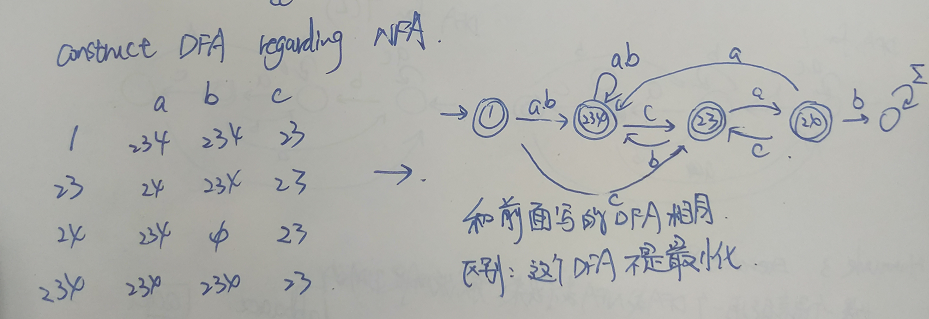 construct DFA regarding NFA.
a b c
1 234 234 23
23 24 234 23
24 234 φ 23
234 234 234 23
→ 1 a.b 234 ab c b 23 a c 24 a b Σ
c
和前面写的DFA相同.
区别: 这个DFA不是最小化.